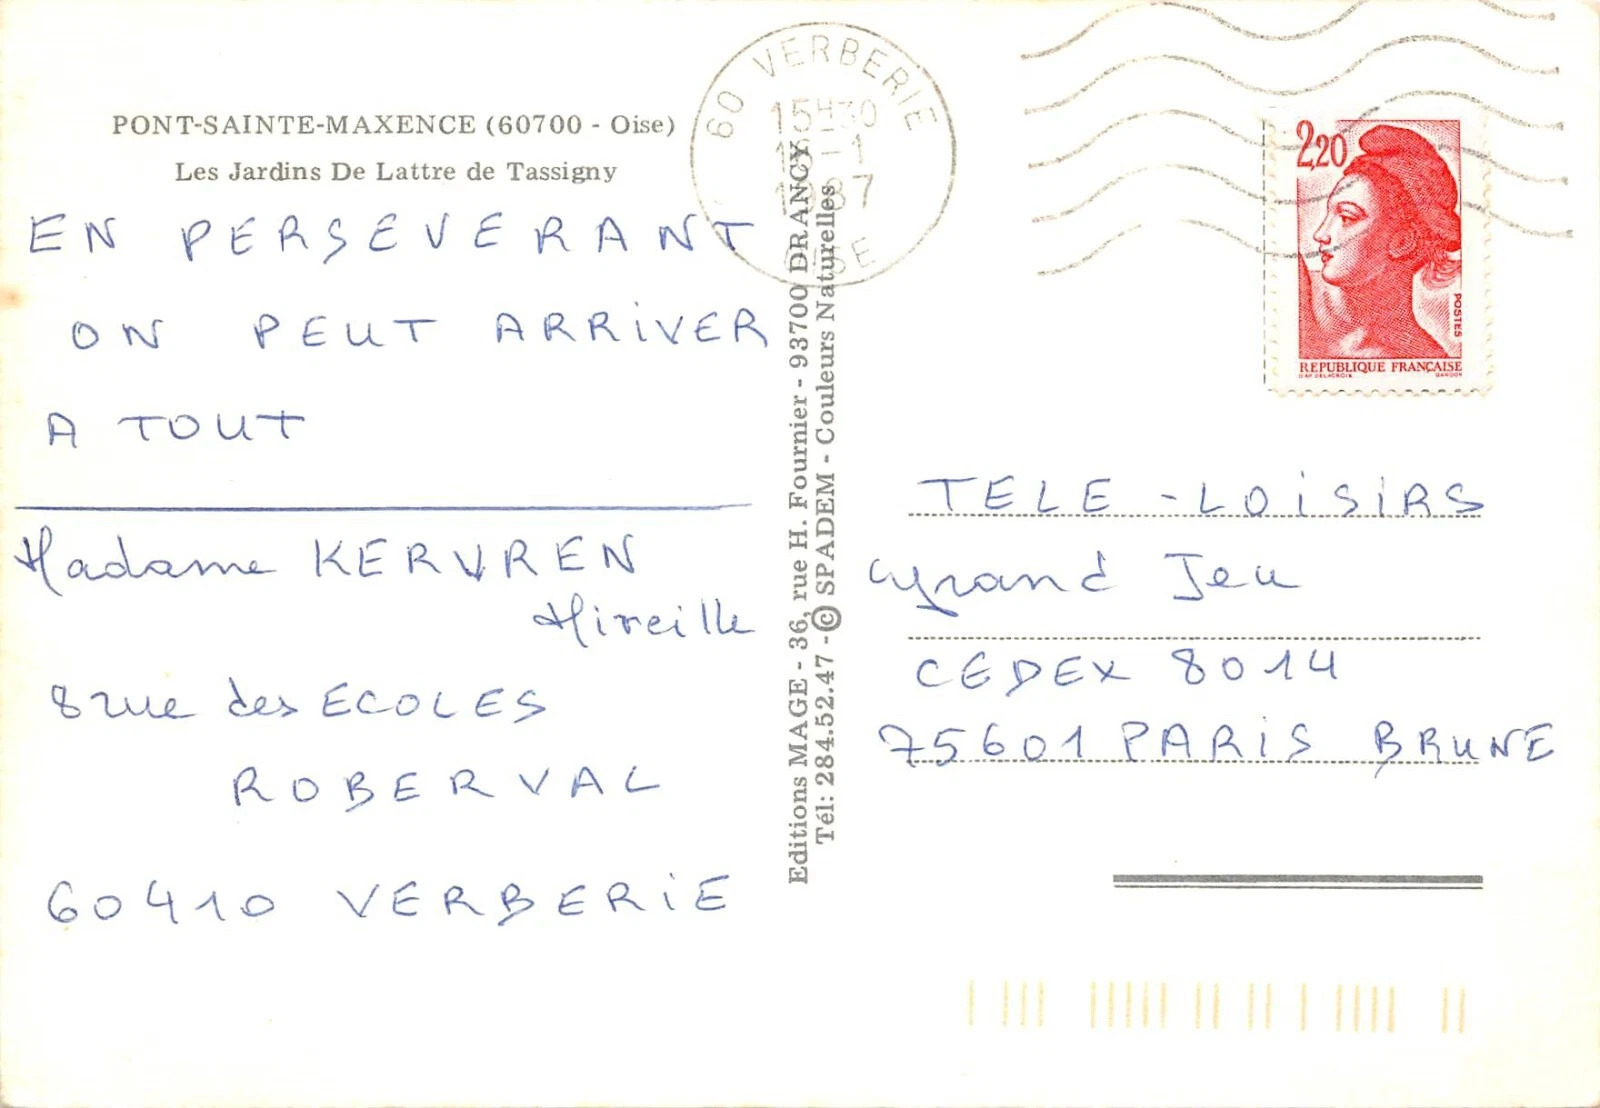 PONT-SAINTE-MAXENCE (60700 - Oise)
Les Jardins De Lattre de Tassigny
EN PERSEVERANT
ON PEUT ARRiVER
A TOUT
Madame KERVREN
Mireille
8 rue des ECOLES
ROBERVAL
60410 VERBERiE
Editions MAGE - 36, rue H. Fournier - 93700 DRANCY
Tél: 284.52.47 - © SPADEM - Couleurs Naturelles
60 VERBERIE
15H30
-1
1987
OISE
2,20
POSTES
REPUBLIQUE FRANÇAISE
D'AP. DELACROIX GANDON
TELE - LOiSiRS
Grand Jeu
CEDEX 8014
75601 PARiS BRUNE